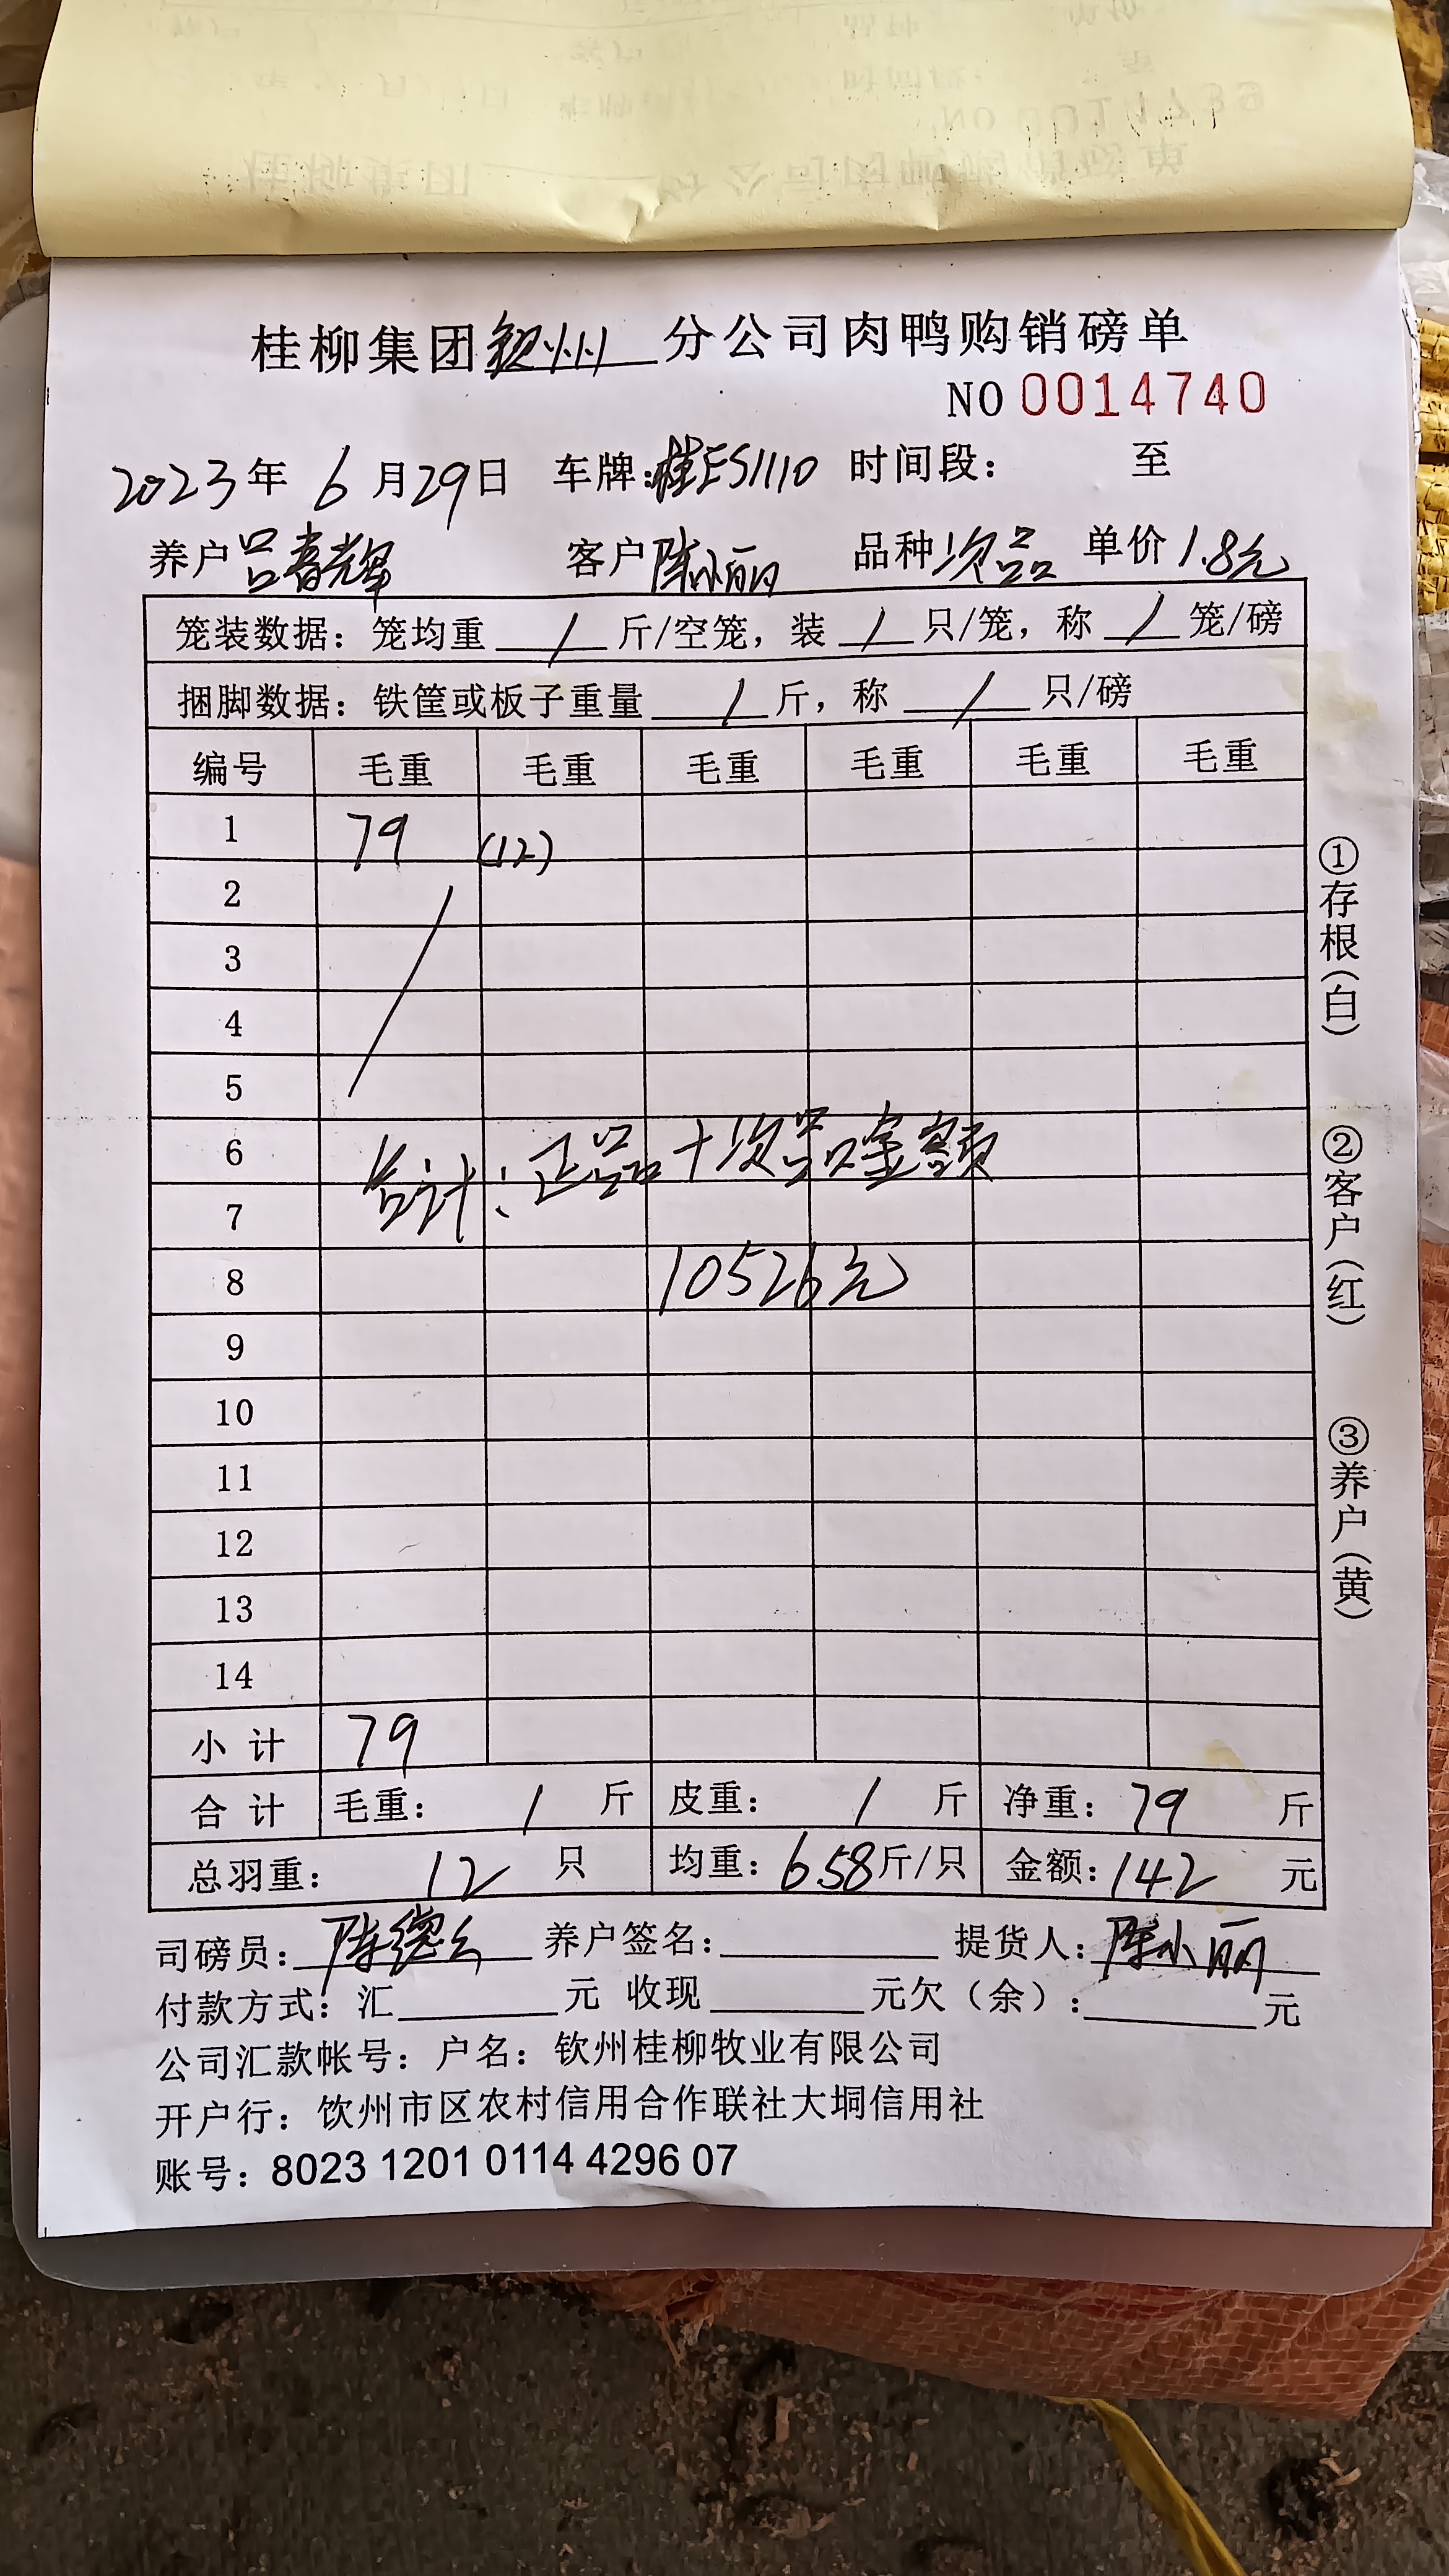 桂柳集团钦州分公司肉鸭购销磅单
NO 0014740
2023年6月29日 车牌:桂ES1110 时间段: 至
养户吕春辉 客户陈小丽 品种次品 单价1.8元
笼装数据：笼均重/斤/空笼，装/只/笼，称/笼/磅
捆脚数据：铁筐或板子重量/斤，称/只/磅
编号 毛重 毛重 毛重 毛重 毛重 毛重
1 79 (12)
2
3
4
5
6
7
合计：正品+次品金额
8 10526元
9
10
11
12
13
14
小计 79
合计 毛重： / 斤 皮重： / 斤 净重：79 斤
总羽重： 12 只 均重：6.58斤/只 金额：142 元
司磅员：陈德 养户签名： 提货人：陈小丽
付款方式：汇 元 收现 元欠（余）： 元
公司汇款帐号：户名：钦州桂柳牧业有限公司
开户行：饮州市区农村信用合作联社大垌信用社
账号：8023 1201 0114 4296 07
①存根（白）
②客户（红）
③养户（黄）